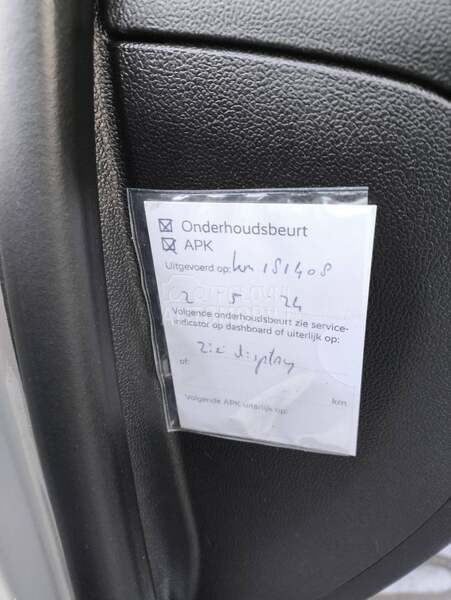 ☒ Onderhoudsbeurt
☒ APK
Uitgevoerd op: km 181408
2 5 24
Volgende onderhoudsbeurt zie service-
indicator op dashboard of uiterlijk op:
zie display
of: km
Volgende APK uiterlijk op: